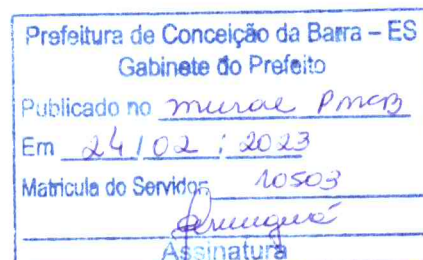 Prefeitura de Conceição da Barra – ES
Gabinete do Prefeito
Publicado no mural PMCB
Em 24 / 02 / 2023
Matricula do Servidor 10503
Assinatura